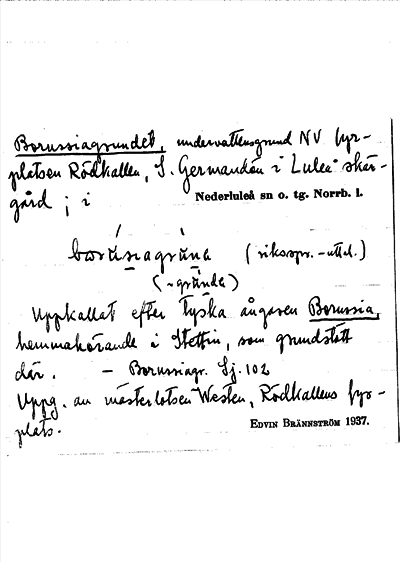 Borussiagrundet, undervattensgrund NV fyr-
platsen Rödkallen, S. Germandön i Luleå skär-
gård; i Nederluleå sn o. tg. Norrb. l.
(riksspr.-uttal.)
(-grúnda)
Uppkallat efter tyska ångaren Borussia,
hemmahörande i Stettin, som grundstött
där. – Borussiagr. Sj. 102
Uppg. av mästerlotsen Westen, Rödkallens fyr-
plats.
EDVIN BRÄNNSTRÖM 1937.